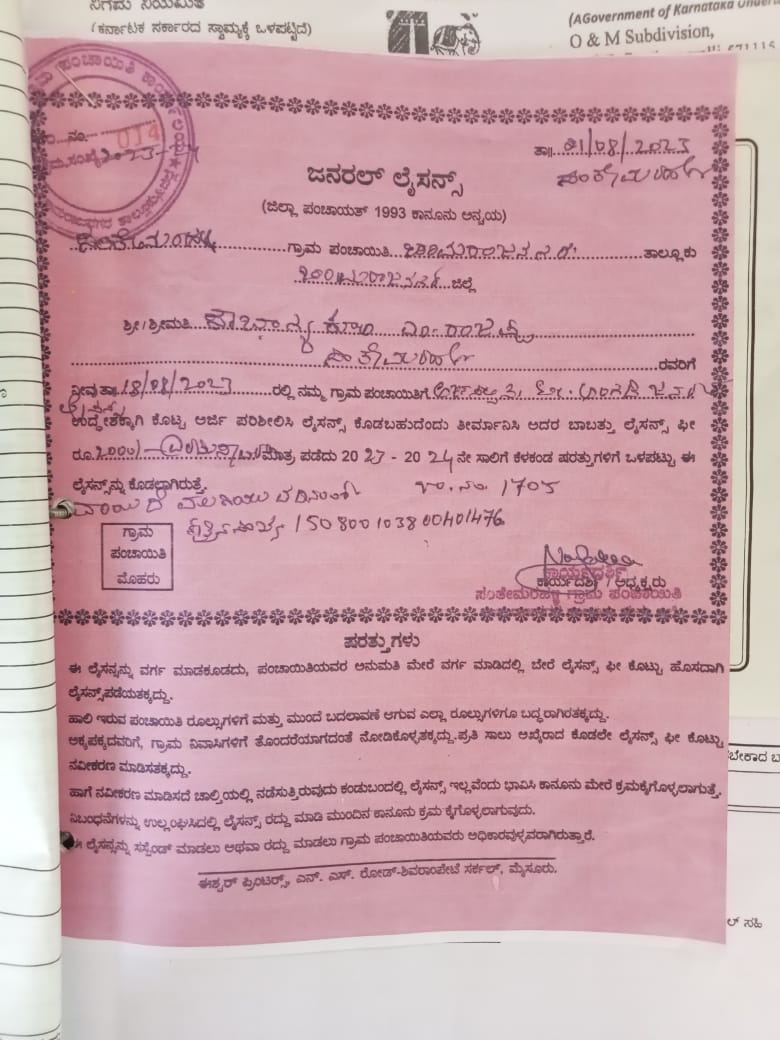 ನಿಗಮ ನಿಯಮಿತ
(ಕರ್ನಾಟಕ ಸರ್ಕಾರದ ಸ್ವಾಮ್ಯಕ್ಕೆ ಒಳಪಟ್ಟಿದೆ)
(AGovernment of Karnataka
O & M Subdivision,
571115
ಪಂಚಾಯಿತಿ
ನಂ. 014
2023-24
ತಾ॥ 21/08/2023
ಸಂತೇಮರಹಳ್ಳಿ
ಜನರಲ್ ಲೈಸನ್ಸ್
(ಜಿಲ್ಲಾ ಪಂಚಾಯತ್ 1993 ಕಾನೂನು ಅನ್ವಯ)
ಗ್ರಾಮ ಪಂಚಾಯಿತಿ ಚಾಮರಾಜನಗರ ತಾಲ್ಲೂಕು
ಚಾಮರಾಜನಗರ ಜಿಲ್ಲೆ
ಶ್ರೀ/ಶ್ರೀಮತಿ ಕೋಂ
ಸಂತೇಮರಹಳ್ಳಿ ರವರಿಗೆ
ನೀವು ತಾ॥ 18/08/2023 ರಲ್ಲಿ ನಮ್ಮ ಗ್ರಾಮ ಪಂಚಾಯಿತಿಗೆ
ಉದ್ದೇಶಕ್ಕಾಗಿ ಕೊಟ್ಟ ಅರ್ಜಿ ಪರಿಶೀಲಿಸಿ ಲೈಸನ್ಸ್ ಕೊಡಬಹುದೆಂದು ತೀರ್ಮಾನಿಸಿ ಅದರ ಬಾಬತ್ತು ಲೈಸನ್ಸ್ ಫೀ
ರೂ. 2000/- ಮಾತ್ರ ಪಡೆದು 2023 - 2024 ನೇ ಸಾಲಿಗೆ ಕೆಳಕಂಡ ಷರತ್ತುಗಳಿಗೆ ಒಳಪಟ್ಟು ಈ
ಲೈಸನ್ಸ್‌ನ್ನು ಕೊಡಲ್ಪಟ್ಟಿರುತ್ತೆ.
ಖಾ.ನಂ. 1705
150800103800401476
ಗ್ರಾಮ
ಪಂಚಾಯಿತಿ
ಮೊಹರು
ಕಾರ್ಯದರ್ಶಿ
ಕಾರ್ಯದರ್ಶಿ / ಅಧ್ಯಕ್ಷರು
ಸಂತೇಮರಹಳ್ಳಿ ಗ್ರಾಮ ಪಂಚಾಯಿತಿ
ಷರತ್ತುಗಳು
ಈ ಲೈಸನ್ಸನ್ನು ವರ್ಗ ಮಾಡಕೂಡದು, ಪಂಚಾಯಿತಿಯವರ ಅನುಮತಿ ಮೇರೆ ವರ್ಗ ಮಾಡಿದಲ್ಲಿ ಬೇರೆ ಲೈಸನ್ಸ್ ಫೀ ಕೊಟ್ಟು ಹೊಸದಾಗಿ
ಲೈಸನ್ಸ್‌ಪಡೆಯತಕ್ಕದ್ದು.
ಹಾಲಿ ಇರುವ ಪಂಚಾಯಿತಿ ರೂಲ್ಸುಗಳಿಗೆ ಮತ್ತು ಮುಂದೆ ಬದಲಾವಣೆ ಆಗುವ ಎಲ್ಲಾ ರೂಲ್ಸುಗಳಿಗೂ ಬದ್ದರಾಗಿರತಕ್ಕದ್ದು.
ಅಕ್ಕಪಕ್ಕದವರಿಗೆ, ಗ್ರಾಮ ನಿವಾಸಿಗಳಿಗೆ ತೊಂದರೆಯಾಗದಂತೆ ನೋಡಿಕೊಳ್ಳತಕ್ಕದ್ದು.ಪ್ರತಿ ಸಾಲು ಆಖೈರಾದ ಕೂಡಲೇ ಲೈಸನ್ಸ್ ಫೀ ಕೊಟ್ಟು
ನವೀಕರಣ ಮಾಡಿಸತಕ್ಕದ್ದು.
ಹಾಗೆ ನವೀಕರಣ ಮಾಡಿಸದೆ ಚಾಲ್ತಿಯಲ್ಲಿ ನಡೆಸುತ್ತಿರುವುದು ಕಂಡುಬಂದಲ್ಲಿ ಲೈಸನ್ಸ್ ಇಲ್ಲವೆಂದು ಭಾವಿಸಿ ಕಾನೂನು ಮೇರೆ ಕ್ರಮಕೈಗೊಳ್ಳಲಾಗುತ್ತೆ.
ನಿಬಂಧನೆಗಳನ್ನು ಉಲ್ಲಂಘಿಸಿದಲ್ಲಿ ಲೈಸನ್ಸ್ ರದ್ದು ಮಾಡಿ ಮುಂದಿನ ಕಾನೂನು ಕ್ರಮ ಕೈಗೊಳ್ಳಲಾಗುವುದು.
ಈ ಲೈಸನ್ಸನ್ನು ಸಸ್ಪೆಂಡ್ ಮಾಡಲು ಅಥವಾ ರದ್ದು ಮಾಡಲು ಗ್ರಾಮ ಪಂಚಾಯಿತಿಯವರು ಅಧಿಕಾರವುಳ್ಳವರಾಗಿರುತ್ತಾರೆ.
ಈಶ್ವರ್ ಪ್ರಿಂಟರ್ಸ್, ಎನ್. ಎಸ್. ರೋಡ್-ಶಿವರಾಂಪೇಟೆ ಸರ್ಕಲ್, ಮೈಸೂರು.
ಬೇಕಾದ
ಸಹಿ